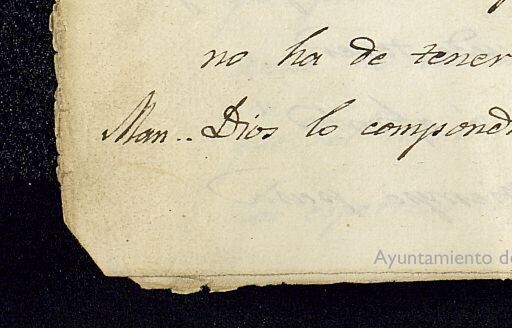 no ha de tener
Man.. Dios lo compond
Ayuntamiento de